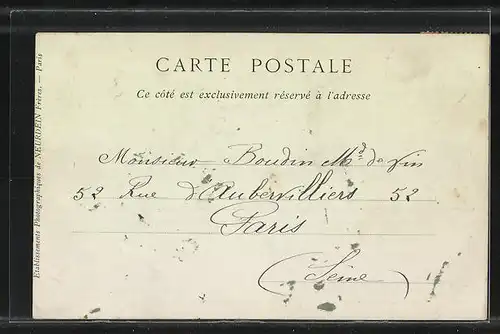 CARTE POSTALE
Ce côté est exclusivement réservé à l'adresse
Monsieur Boudin Md de vin
52 Rue d'Aubervilliers 52
Paris
(Seine)
Etablissements Photographiques de NEURDEIN Frères. — Paris